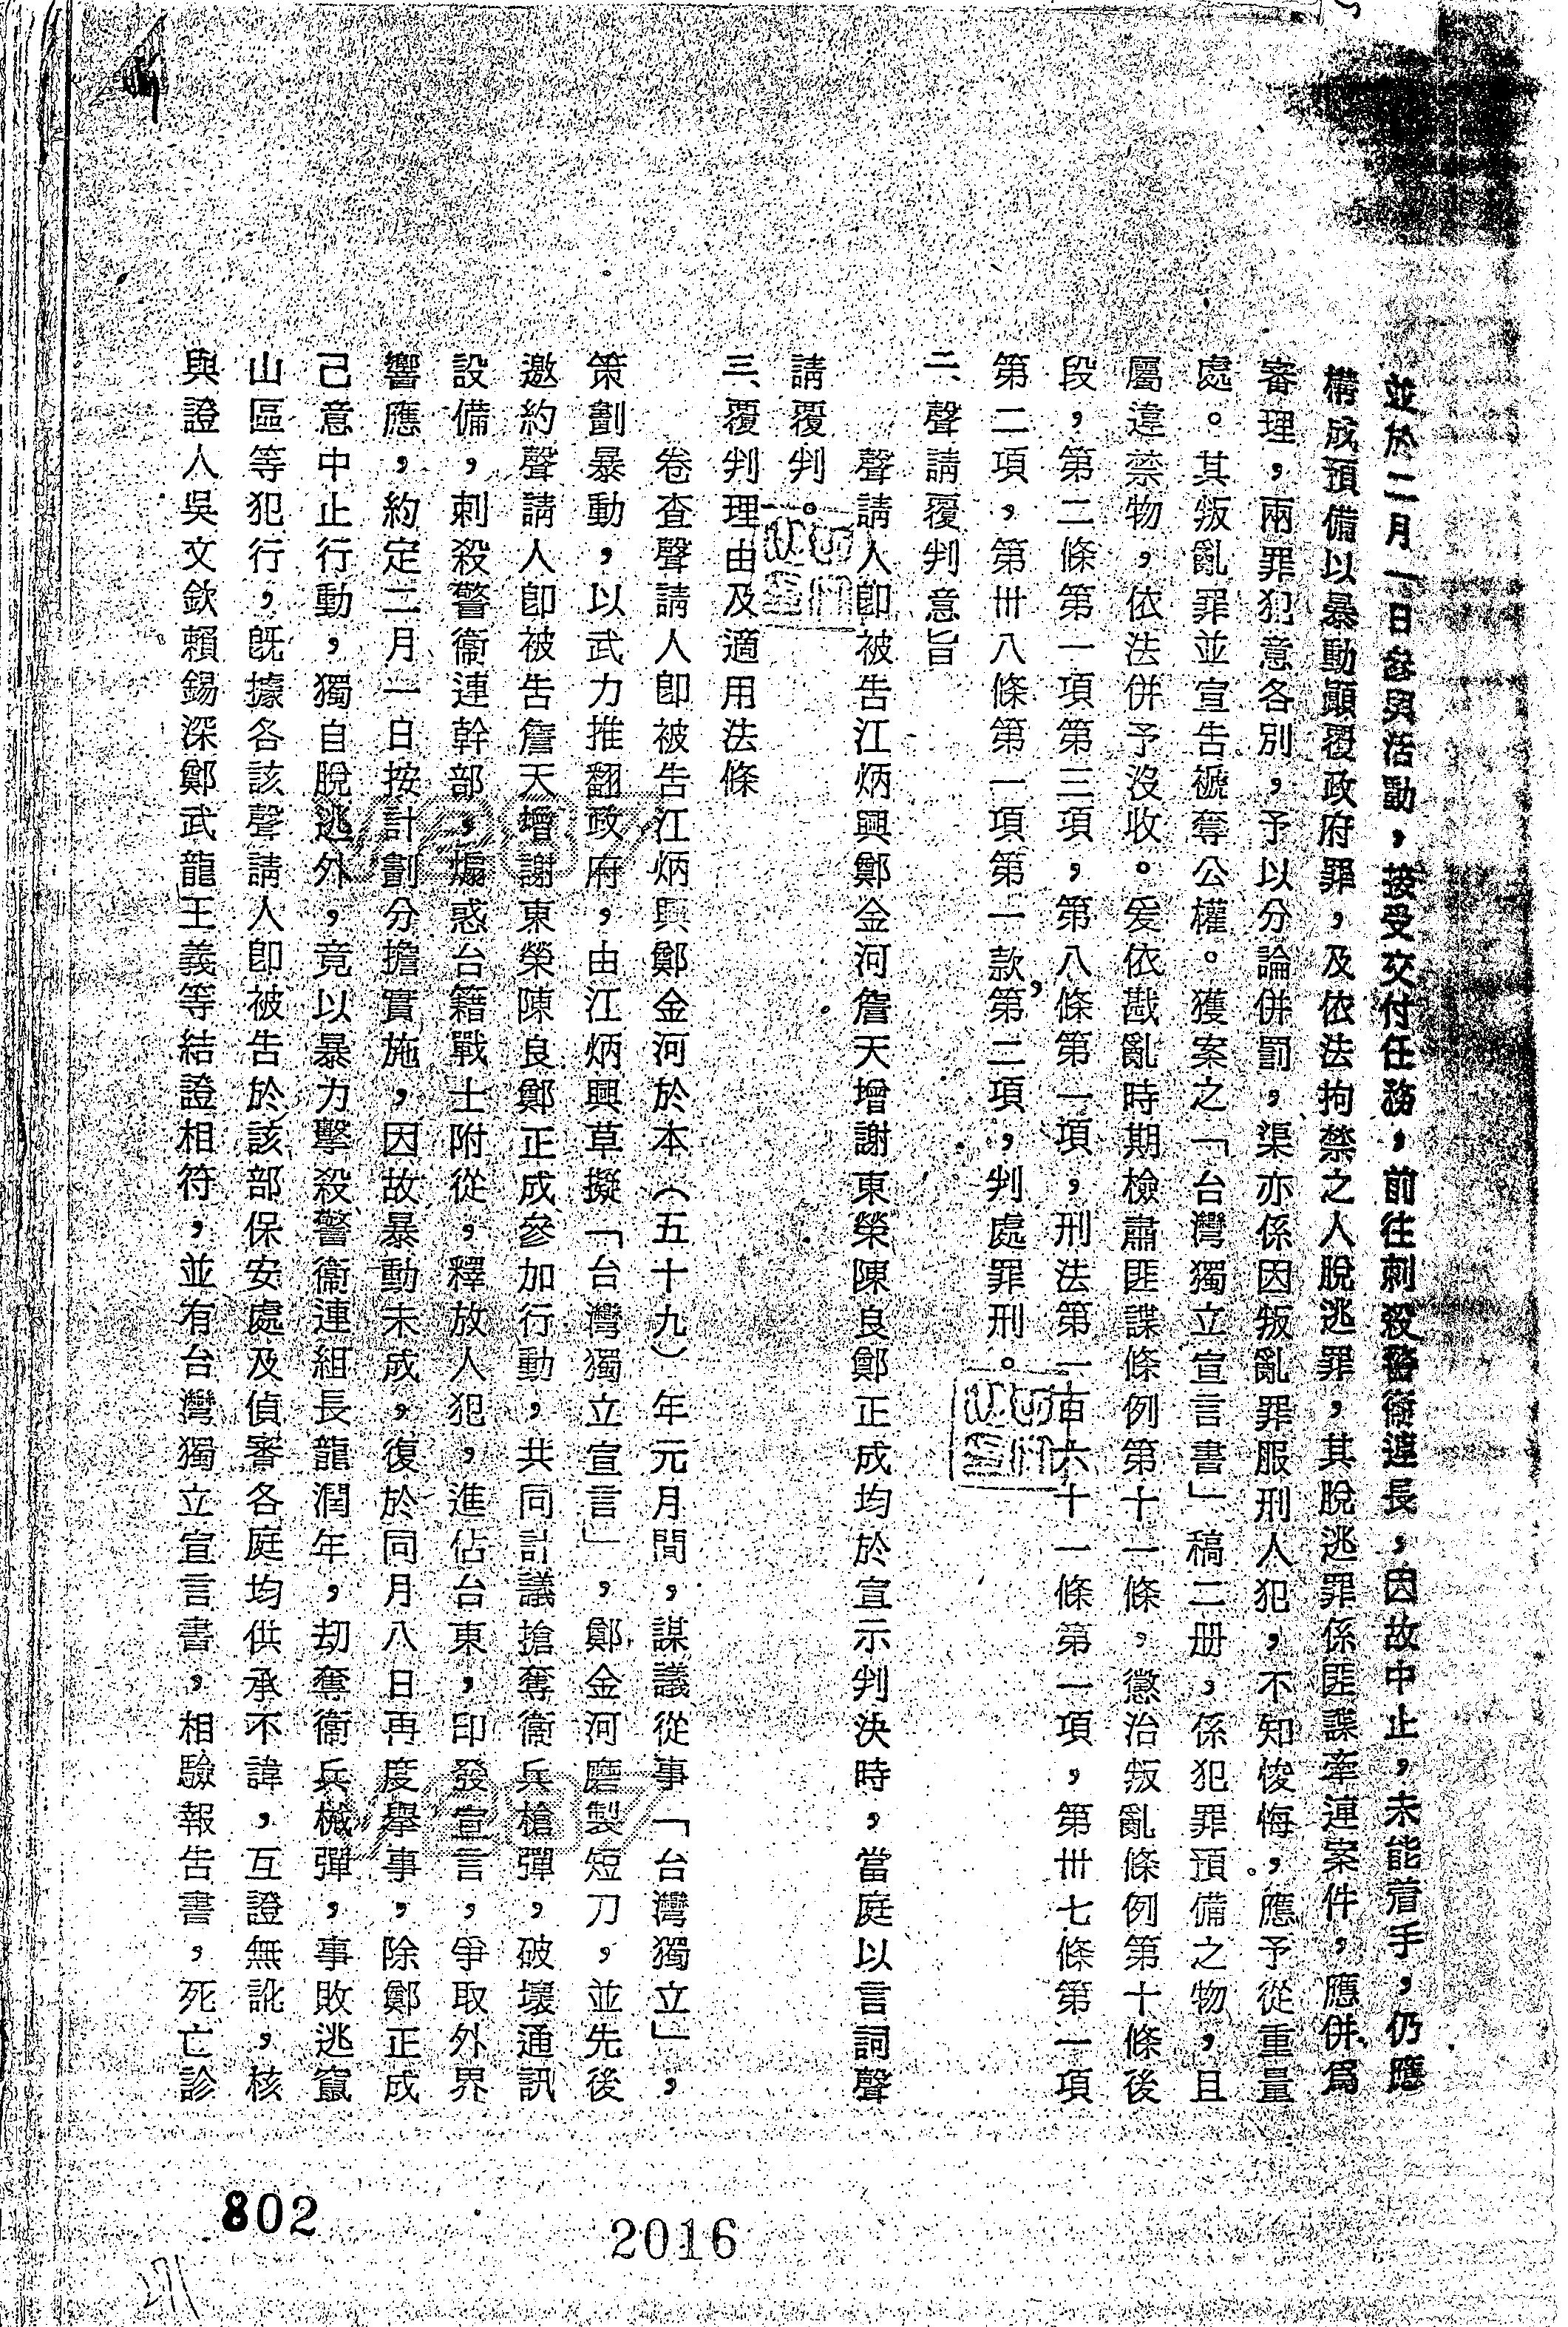 並於二月一日參與活動，接受交付任務，前往刺殺警衛連長，因故中止，未能着手，仍應
構成預備以暴動顚覆政府罪，及依法拘禁之人脫逃罪，其脫逃罪係匪諜牽連案件，應併爲
審理，兩罪犯意各別，予以分論併罰，渠亦係因叛亂罪服刑人犯，不知悛悔，應予從重量
處。其叛亂罪並宣告褫奪公權。獲案之「台灣獨立宣言書」稿二册，係犯罪預備之物，且
屬違禁物，依法併予沒收。爰依戡亂時期檢肅匪諜條例第十一條，懲治叛亂條例第十條後
段，第二條第一項第三項，第八條第一項，刑法第一百六十一條第一項，第卅七條第一項
第二項，第卅八條第一項第一款，第二項，判處罪刑。
二、聲請覆判意旨
聲請人卽被告江炳興鄭金河詹天增謝東榮陳良鄭正成均於宣示判決時，當庭以言詞聲
請覆判。
三、覆判理由及適用法條
卷查聲請人卽被告江炳興鄭金河於本（五十九）年元月間，謀議從事「台灣獨立」，
策劃暴動，以武力推翻政府，由江炳興草擬「台灣獨立宣言」，鄭金河磨製短刀，並先後
邀約聲請人卽被告詹天增謝東榮陳良鄭正成參加行動，共同計議搶奪衛兵槍彈，破壞通訊
設備，刺殺警衛連幹部，煽惑台籍戰士附從，釋放人犯，進佔台東，印發宣言，爭取外界
響應，約定二月一日按計劃分擔實施，因故暴動未成，復於同月八日再度舉事，除鄭正成
己意中止行動，獨自脫逃外，竟以暴力擊殺警衛連組長龍潤年，刧奪衛兵械彈，事敗逃竄
山區等犯行，旣據各該聲請人卽被告於該部保安處及偵審各庭均供承不諱，互證無訛，核
與證人吳文欽賴錫深鄭武龍王義等結證相符，並有台灣獨立宣言書，相驗報告書，死亡診
802
2016
271